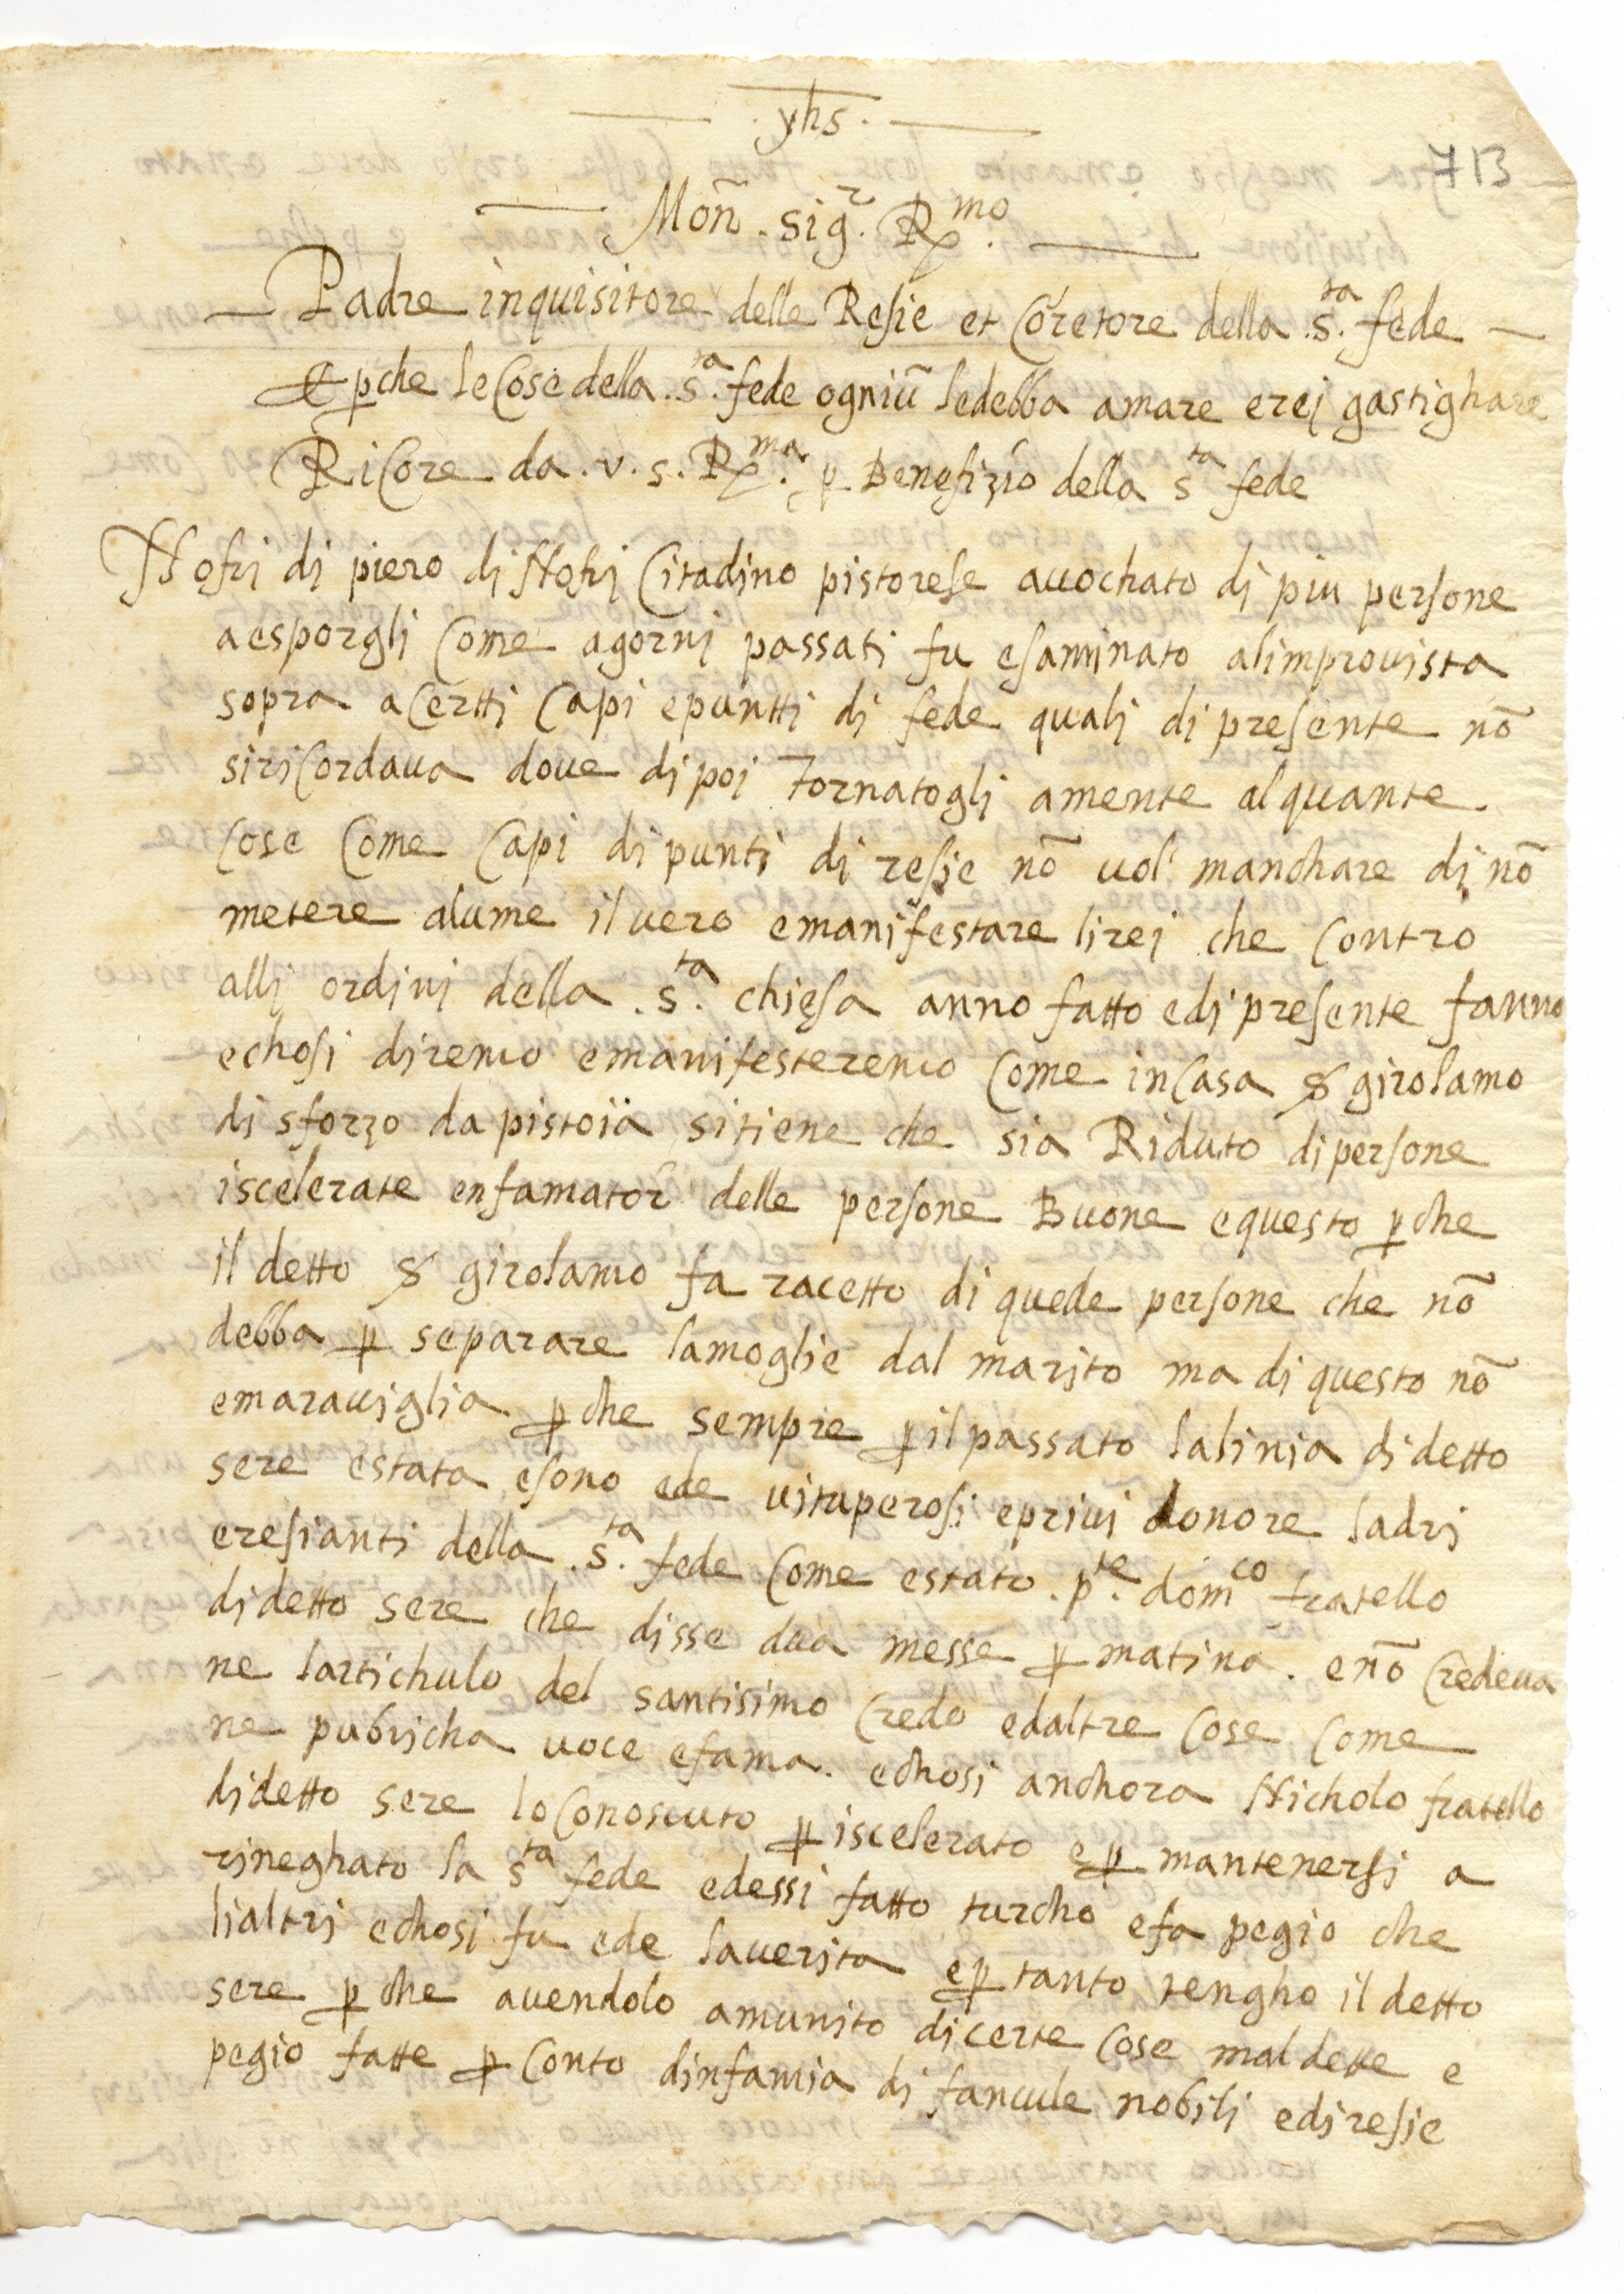 yhs
713
Moñ. sigr. Rx.mo
Padre inquisitore delle Resie et Coretore della .s.ta fede
E pche le Cose della .s.ta fede ogniū le debba amare e rej gastighare
RiCore da .v.s. Rx.ma p Benefizio della sta fede
Nofri di piero di Nofri Citadino pistorese auochato di piu persone
a esporgli Come agorni passati fu esaminato alimprouista
sopra a Certti Capi e puntti di fede quali di presente nō
si riCordaua doue di poi Tornatogli amente alquante.
Cose Come Capi di punti di resie nō uol manchare di nō
metere alume il uero e manifestare li rei che Contro
alli ordini della .s.ta chiesa anno fatto e di presente fanno
e chosi diremo e manifesteremo Come in Casa s girolamo
di sforzo da pistoia si tiene che sia Riduto di persone
iscelerate enfamator delle persone Buone e questo pche
il detto s girolamo fa racetto di quede persone che nō
debba p separare la moglie dal marito ma di questo nō
e marauiglia pche sempre p il passato la linia di detto
sere estata e sono ede uituperosi e priui donore ladri
eresianti della .s.ta fede Come estato .p.te domco fratello
di detto sere che disse dua messe p matina. e nō Credeua
ne lartichulo del santisimo Credo ed altre Cose Come
ne pubricha uoce e fama. e chosi anchora Nicholo fratello
di detto sere lo Conosciuto p iscelerato e p mantenersi a
rineghato la sta fede ed essi fatto turcho e fa pegio che
li altri e chosi fu ede la uerita e p tanto tengho il detto
sere pche auendolo amunito di certe Cose mal dette e
pegio fatte p Conto dinfamia di fanciule nobili e di resie